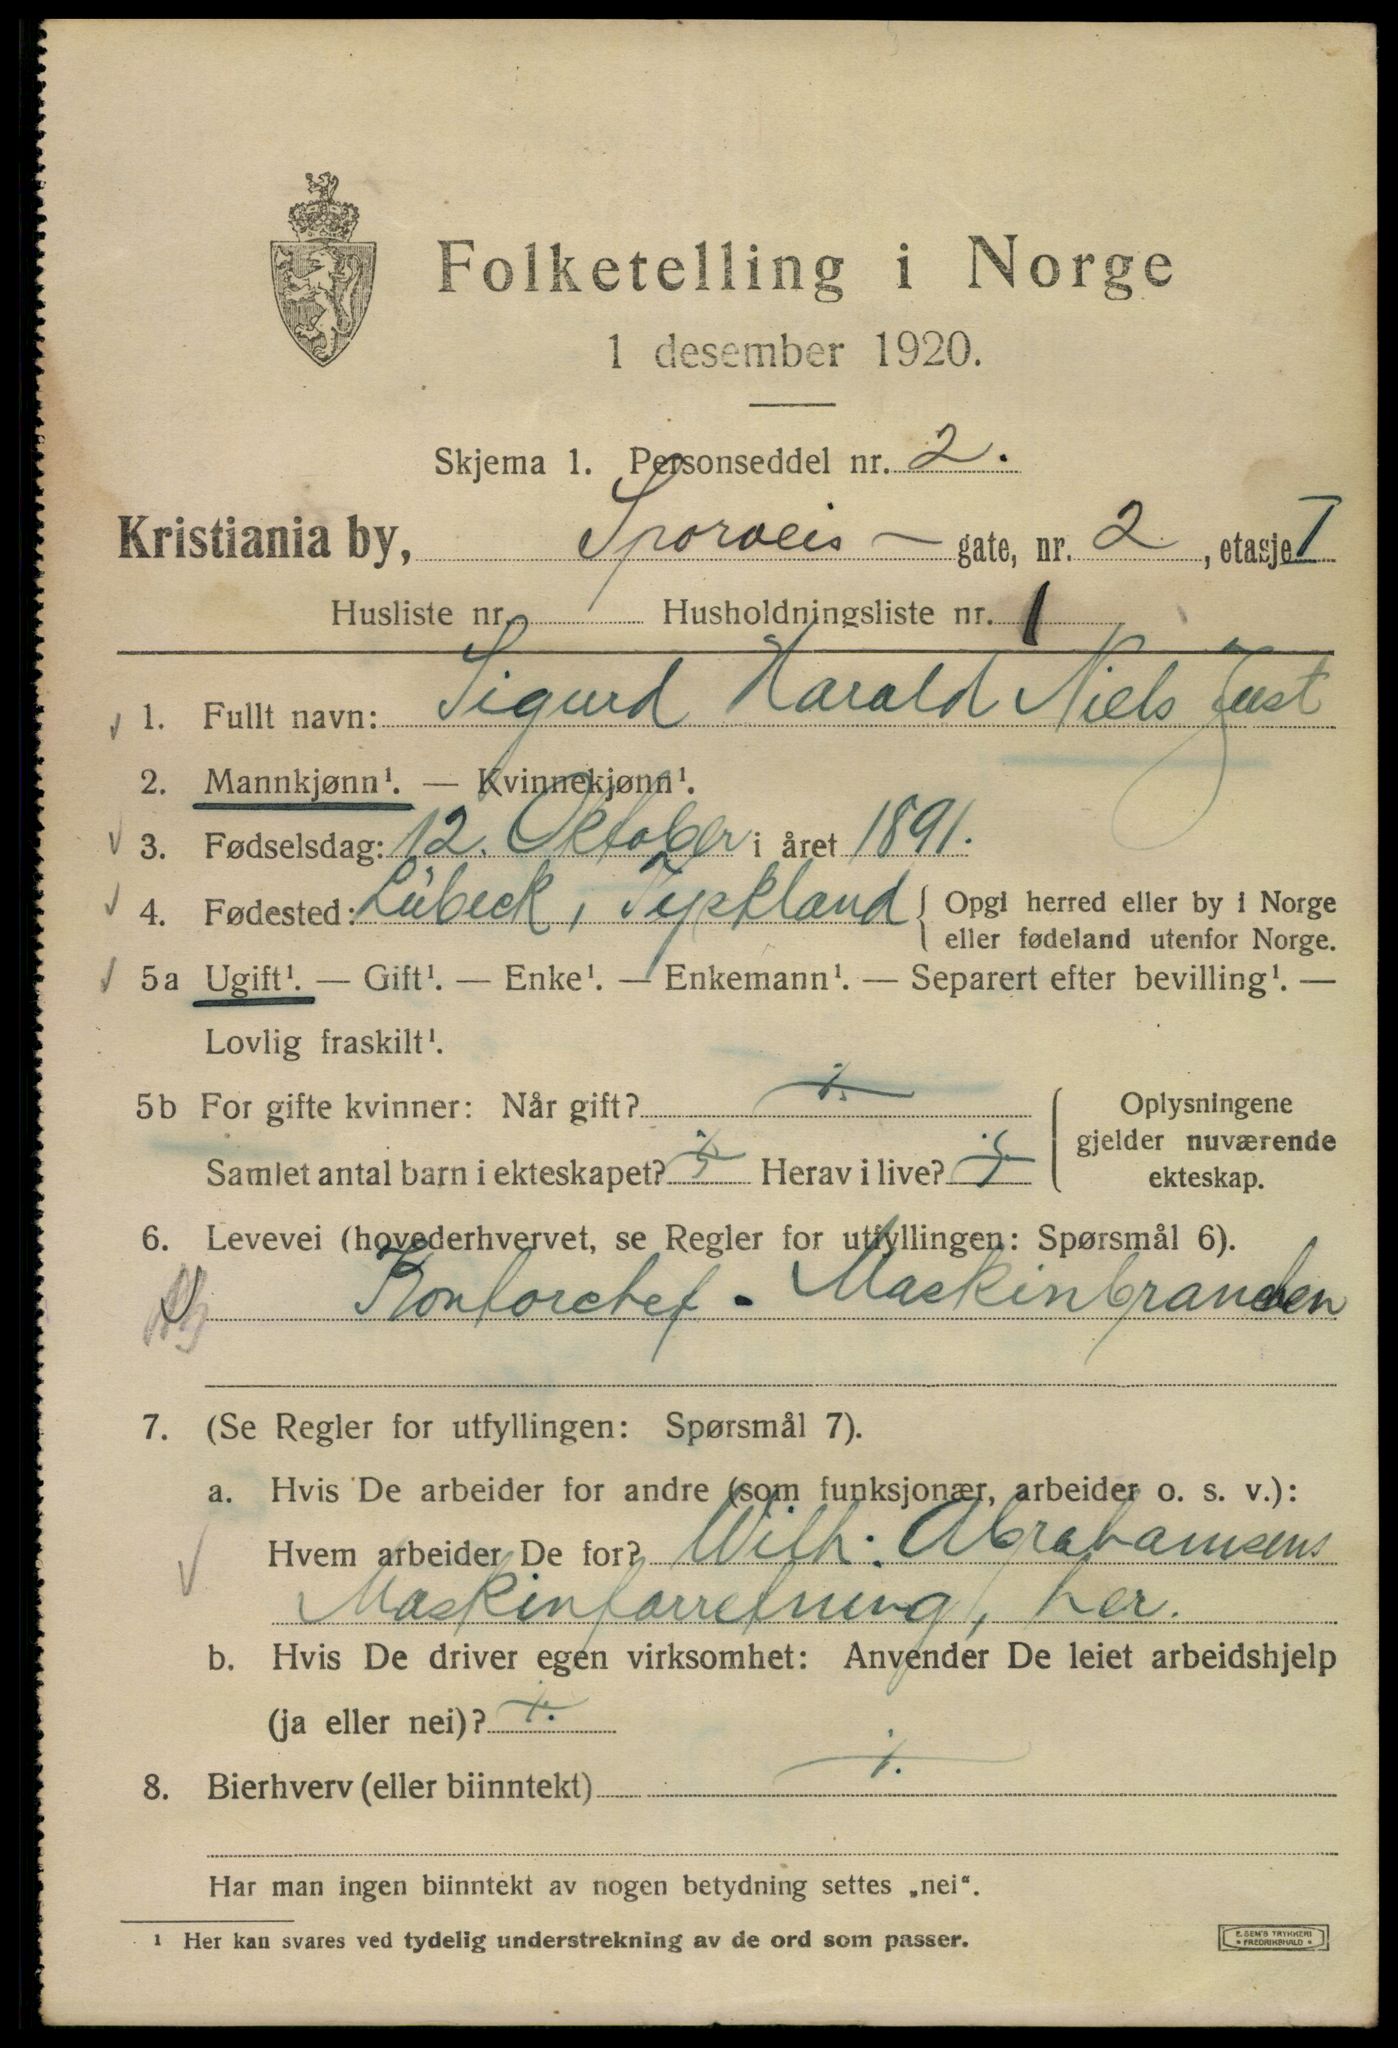 Folketelling i Norge
1 desember 1920.
Skjema 1. Personseddel nr. 2.
Kristiania by, Sporveis – gate, nr. 2, etasje I
Husliste nr. Husholdningsliste nr. 1
1. Fullt navn: Sigurd Harald Niels Just
2. Mannkjønn¹. — Kvinnekjønn¹.
3. Fødselsdag: 12. Oktober i året 1891.
4. Fødested: Lübeck, Tyskland { Opgi herred eller by i Norge
eller fødeland utenfor Norge.
5a Ugift¹. — Gift¹. — Enke¹. — Enkemann¹. — Separert efter bevilling¹. —
Lovlig fraskilt¹.
5b For gifte kvinner: Når gift? ÷
Samlet antal barn i ekteskapet? ÷ Herav i live? ÷
Oplysningene
gjelder nuværende
ekteskap.
6. Levevei (hovederhvervet, se Regler for utfyllingen: Spørsmål 6).
Kontorchef - Maskinbranchen
7. (Se Regler for utfyllingen: Spørsmål 7).
a. Hvis De arbeider for andre (som funksjonær, arbeider o. s. v.):
Hvem arbeider De for? Wilh. Abrahamsens
Maskinforretning, her.
b. Hvis De driver egen virksomhet: Anvender De leiet arbeidshjelp
(ja eller nei)? ÷
8. Bierhverv (eller biinntekt) ÷
Har man ingen biinntekt av nogen betydning settes „nei“.
¹ Her kan svares ved tydelig understrekning av de ord som passer.
E. SEM'S TRYKKERI
• FREDRIKSHALD •